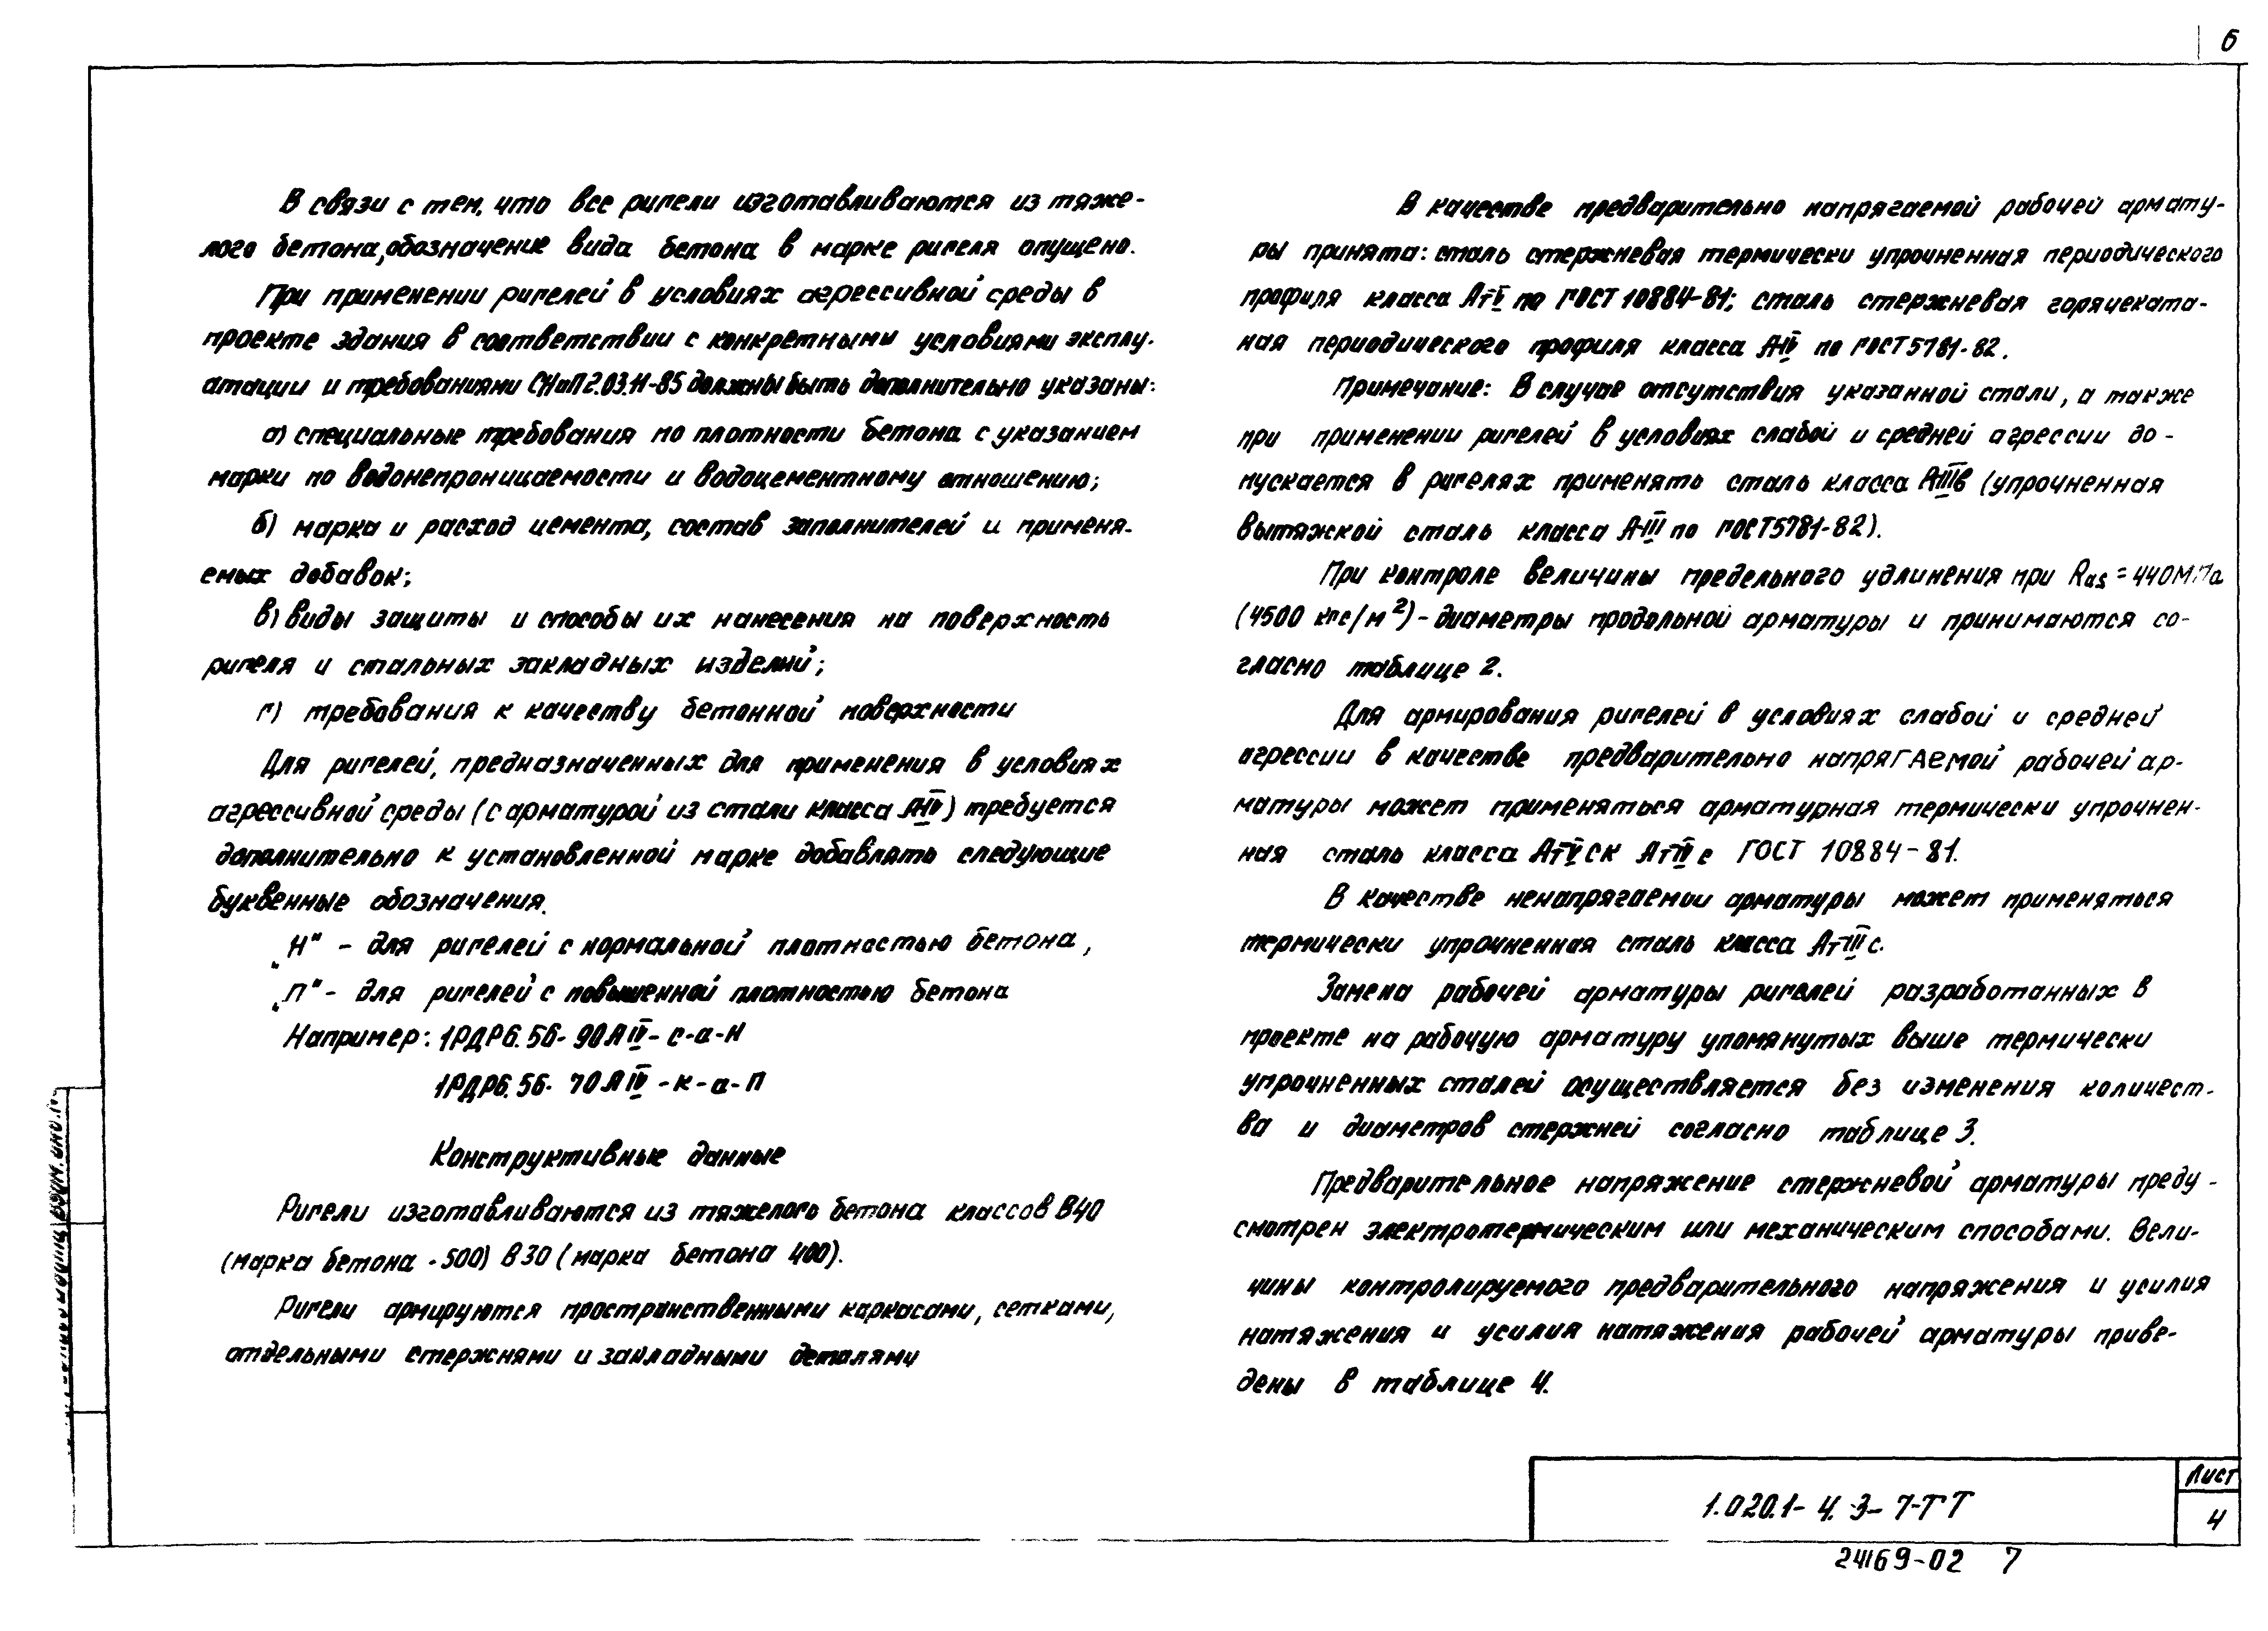 6
В связи с тем, что все ригели изготавливаются из тяже-
лого бетона, обозначение вида бетона в марке ригеля опущено.
При применении ригелей в условиях агрессивной среды в
проекте здания в соответствии с конкретными условиями эксплу-
атации и требованиями СНиП 2.03.11-85 должны быть дополнительно указаны:
а) специальные требования по плотности бетона с указанием
марки по водонепроницаемости и водоцементному отношению;
б) марка и расход цемента, состав заполнителей и применя-
емых добавок;
в) виды защиты и способы их нанесения на поверхность
ригеля и стальных закладных изделий;
г) требования к качеству бетонной поверхности
Для ригелей, предназначенных для применения в условиях
агрессивной среды (с арматурой из стали класса А-IV) требуется
дополнительно к установленной марке добавлять следующие
буквенные обозначения.
„Н" - для ригелей с нормальной плотностью бетона,
„П" - для ригелей с повышенной плотностью бетона
Например: 1РДР6.56-90АIV-с-а-Н
1РДР6.56-70АIV-к-а-П
Конструктивные данные
Ригели изготавливаются из тяжелого бетона классов В40
(марка бетона - 500) В30 (марка бетона 400).
Ригели армируются пространственными каркасами, сетками,
отдельными стержнями и закладными деталями
В качестве предварительно напрягаемой рабочей армату-
ры принята: сталь стержневая термически упрочненная периодического
профиля класса Ат-V по ГОСТ 10884-81; сталь стержневая горячеката-
ная периодического профиля класса А-IV по ГОСТ 5781-82.
Примечание: В случае отсутствия указанной стали, а также
при применении ригелей в условиях слабой и средней агрессии до-
пускается в ригелях применять сталь класса А-IIIв (упрочненная
вытяжкой сталь класса А-III по ГОСТ 5781-82).
При контроле величины предельного удлинения при Ras = 440МПа
(4500 кгс/м²) - диаметры продольной арматуры и принимаются со-
гласно таблице 2.
Для армирования ригелей в условиях слабой и средней
агрессии в качестве предварительно напрягаемой рабочей ар-
матуры может применяться арматурная термически упрочнен-
ная сталь класса Ат-VСК Ат-IVс ГОСТ 10884-81.
В качестве ненапрягаемой арматуры может применяться
термически упрочненная сталь класса Ат-IIIс.
Замена рабочей арматуры ригелей разработанных в
проекте на рабочую арматуру упомянутых выше термически
упрочненных сталей осуществляется без изменения количест-
ва и диаметров стержней согласно таблице 3.
Предварительное напряжение стержневой арматуры преду-
смотрен электротермическим или механическим способами. Вели-
чины контролируемого предварительного напряжения и усилия
натяжения и усилия натяжения рабочей арматуры приве-
дены в таблице 4.
1.020.1-4.3-7-ТТ
Лист
4
24169-02 7